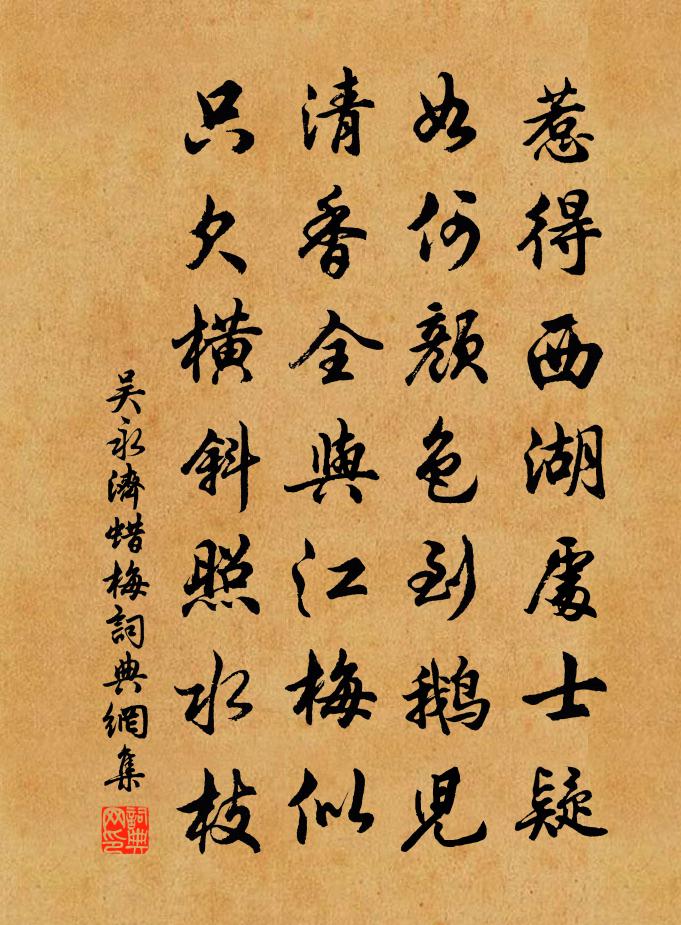 惹得西湖處士疑
如何顏色到鵝兒
清香全與江梅似
只欠橫斜照水枝
吴永濟蜡梅詞典網集
詞典网印